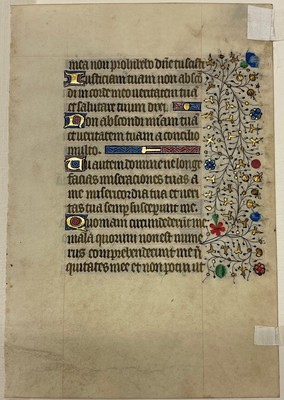 mea non prohibebo dñe tu scisti
Iusticiam tuam non absco
di in corde meo veritatem tua
et salutare tuum dixi.
Non abscondi misam tua
et veritatem tuam a concilio
multo.
Tu autem domine ne longe
facias miseraciones tuas a
me misericordia tua et veri
tas tua semp susceperunt me.
Quoniam circumdederūt me
mala quorum non est nume
rus comprehenderunt me in
quitates mee et non potui ut